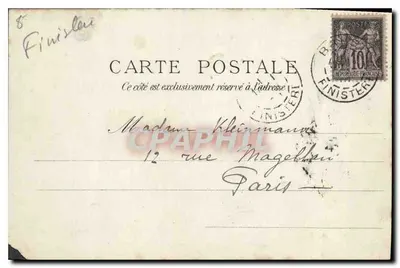 8
Finistere
10
FINISTERE
CARTE POSTALE
Ce côté est exclusivement réservé à l'adresse
FINISTERE
Madame Kleinmann
CPARAMA
12 rue Magellan
Paris